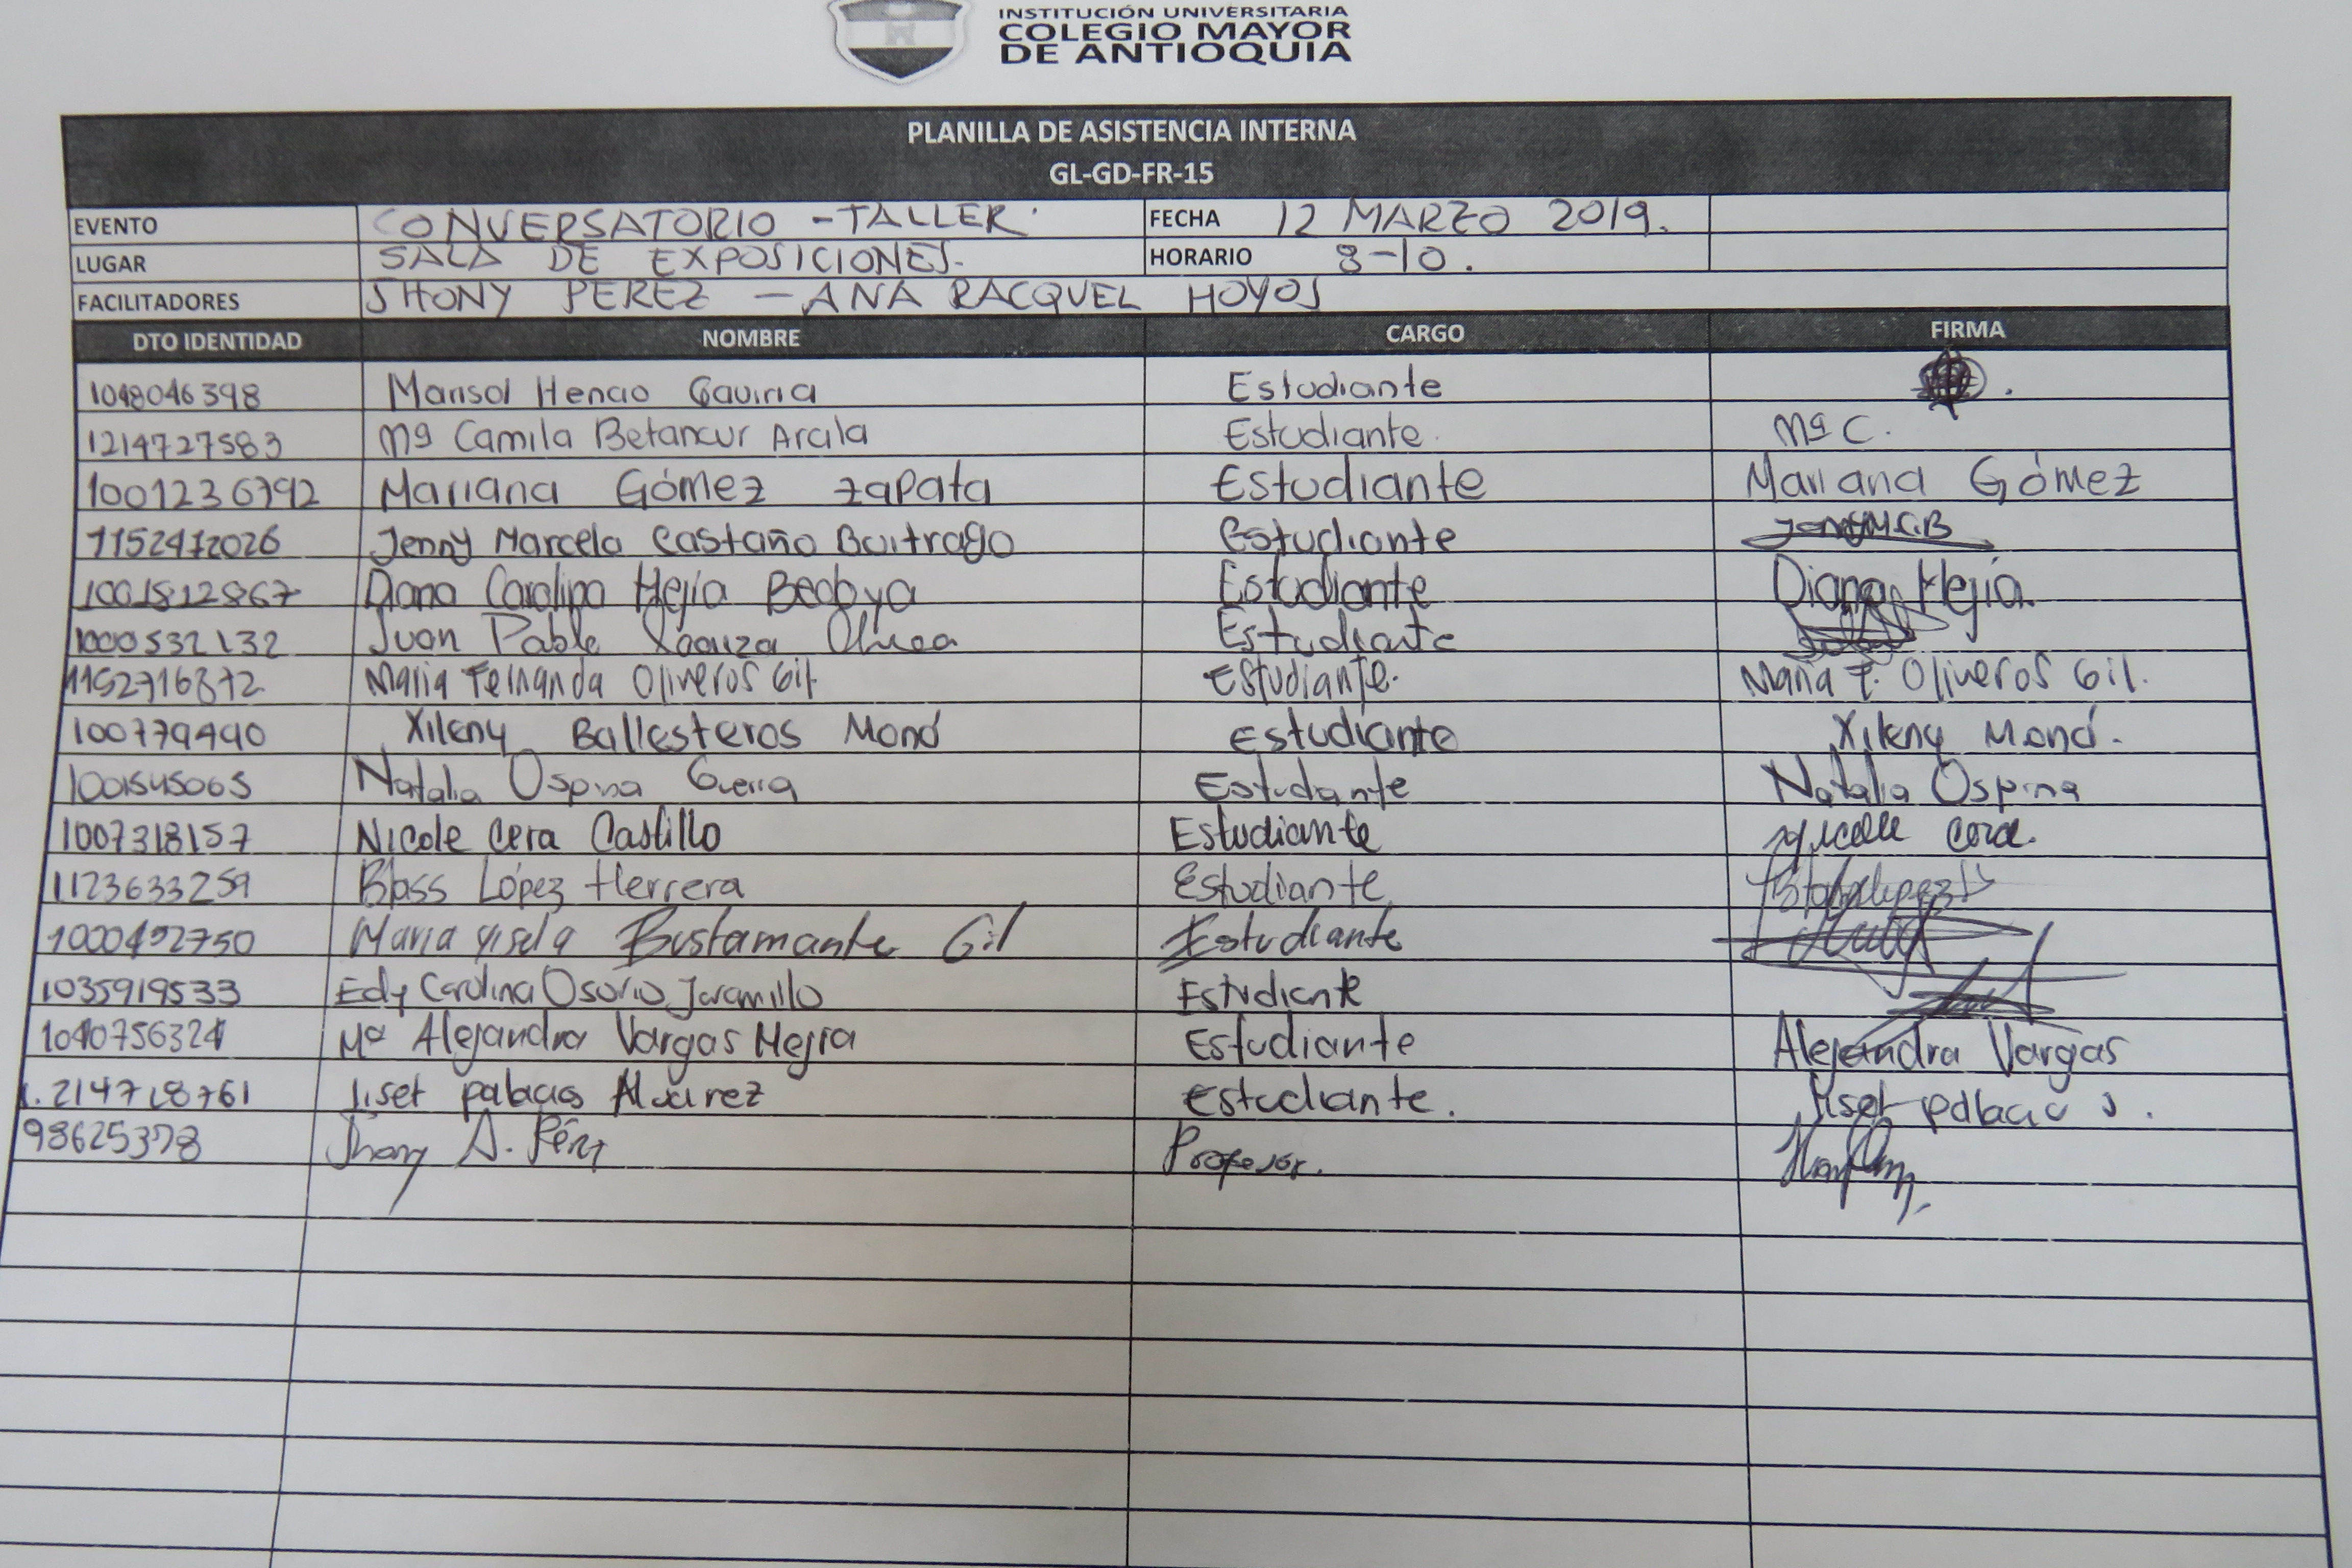 INSTITUCIÓN UNIVERSITARIA
COLEGIO MAYOR
DE ANTIOQUIA
PLANILLA DE ASISTENCIA INTERNA
GL-GD-FR-15
EVENTO CONVERSATORIO - TALLER. FECHA 12 MARZO 2019.
LUGAR SALA DE EXPOSICIONES. HORARIO 8-10.
FACILITADORES JHONY PEREZ - ANA RACQUEL HOYOS
DTO IDENTIDAD NOMBRE CARGO FIRMA
1048046398 Marisol Henao Gaviria Estudiante
1214727583 Mª Camila Betancur Arcila Estudiante. Mª C.
1001236792 Mariana Gómez zapata Estudiante Mariana Gómez
1152472026 Jenny Marcela Castaño Buitrago Estudiante JennyM.C.B
1001812867 Diana Carolina Mejía Bedoya Estudiante Diana Mejía.
1000532132 Juan Pablo Estudiante
1152716872 Maria Fernanda Oliveros Gil Estudiante. Maria F. Oliveros Gil.
100779490 Xileny Ballesteros Moná Estudiante Xileny Moná.
1001545065 Natalia Ospina Guerra Estudiante Natalia Ospina
1007318157 Nicole Cera Castillo Estudiante Nicole Cera.
1123633259 Blass López Herrera Estudiante
1000492750 Maria Gisela Bustamante Gil Estudiante
1035919533 Edy Carolina Osorio Jaramillo Estudiante
1040756324 Mª Alejandra Vargas Mejía Estudiante Alejandra Vargas
1.214718761 Liset palacios Alvarez Estudiante. Liset palacios.
98625378 Jhony A. Pérez Profesor.